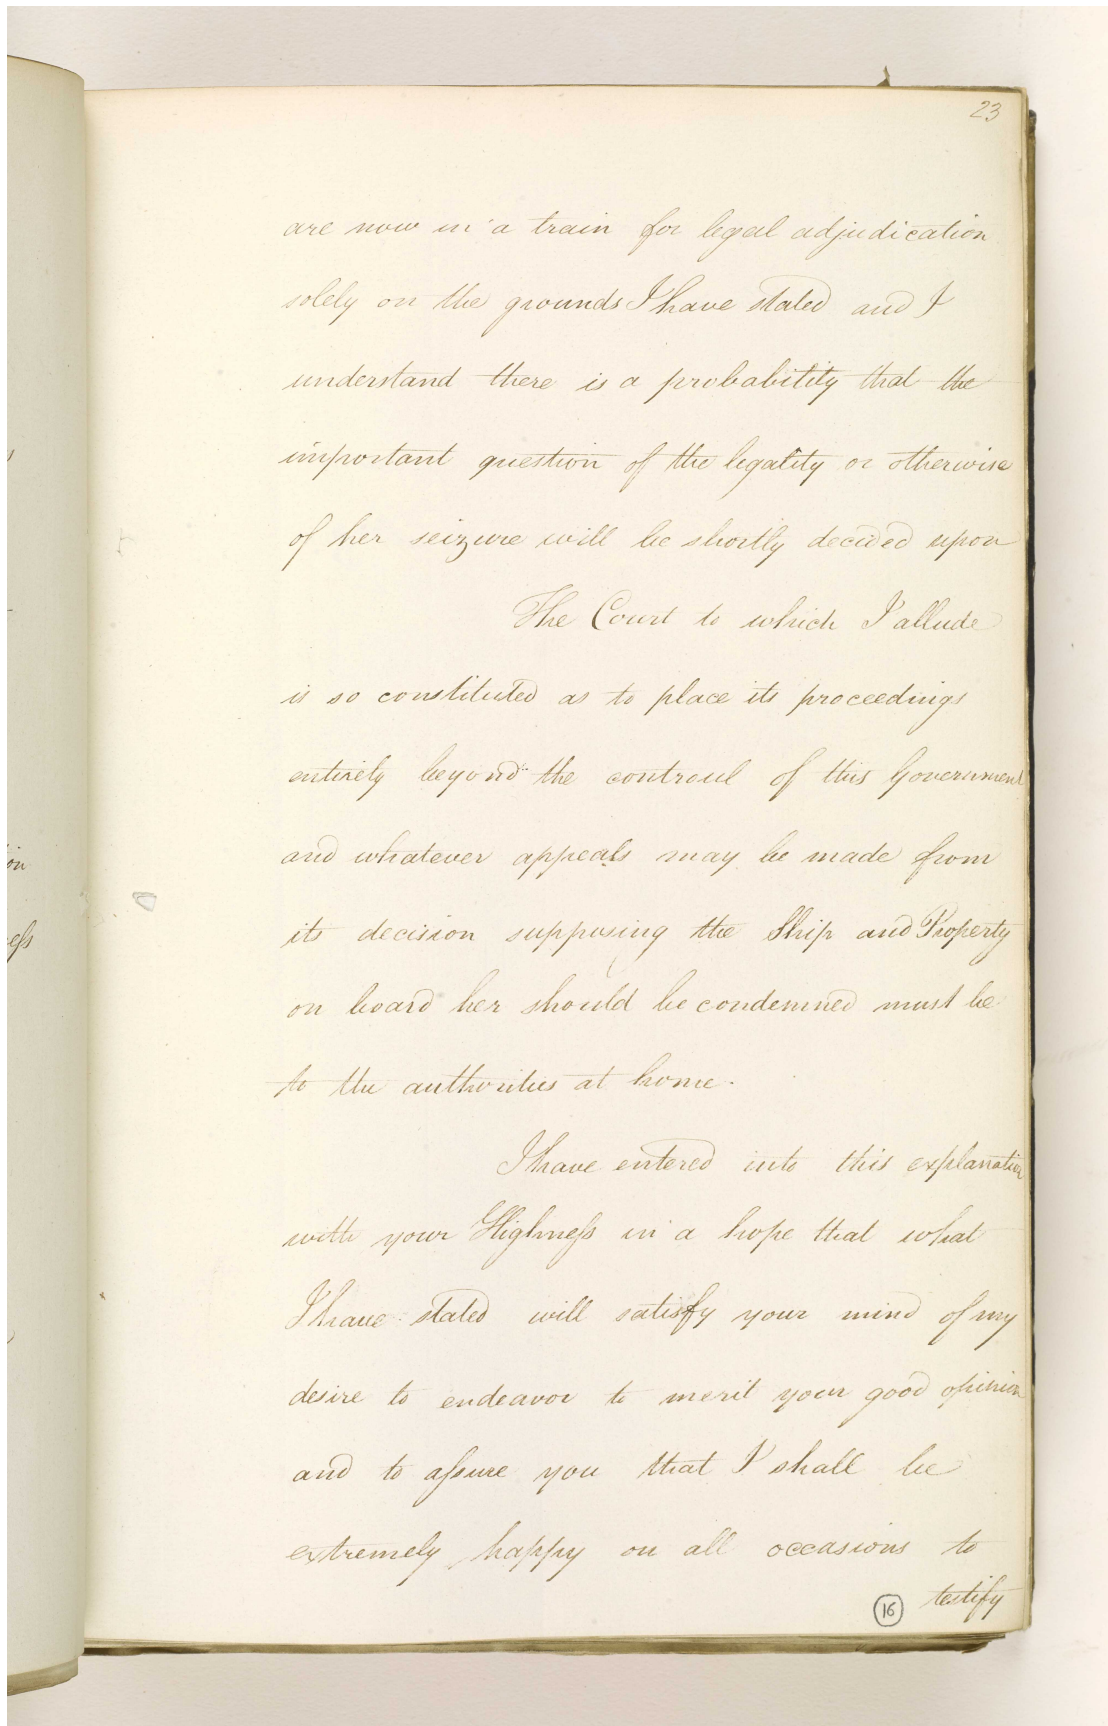 23
are now in a train for legal adjudication
solely on the grounds I have stated and I
understand there is a probability that the
important question of the legality or otherwise
of her seizure will be shortly decided upon
The Court to which I allude
is so constituted as to place its proceedings
entirely beyond the controul of this Government
and whatever appeals may be made from
its decision supposing the Ship and Property
on board her should be condemned must be
to the authorities at home.
I have entered into this explanation
with your Highneſs in a hope that what
I have stated will satisfy your mind of my
desire to endeavor to merit your good opinion
and to aſsure you that I shall be
extremely happy on all occasions to
testify
16
ion
eſs